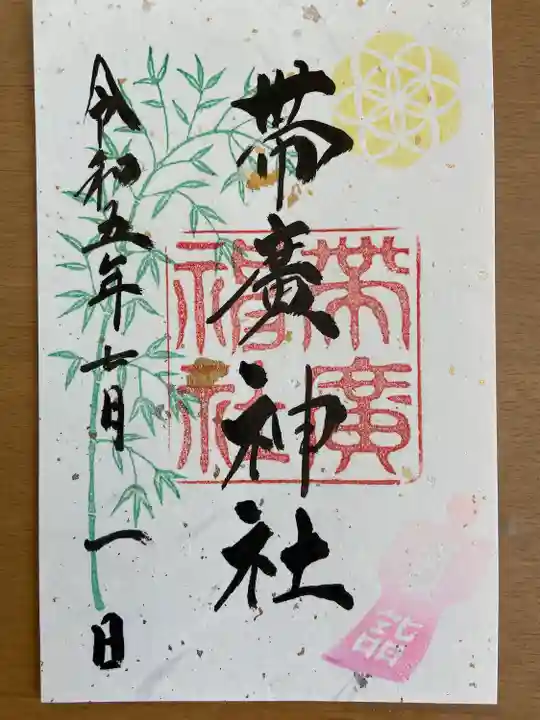 帯廣神社
令和五年七月一日
帯廣
神社